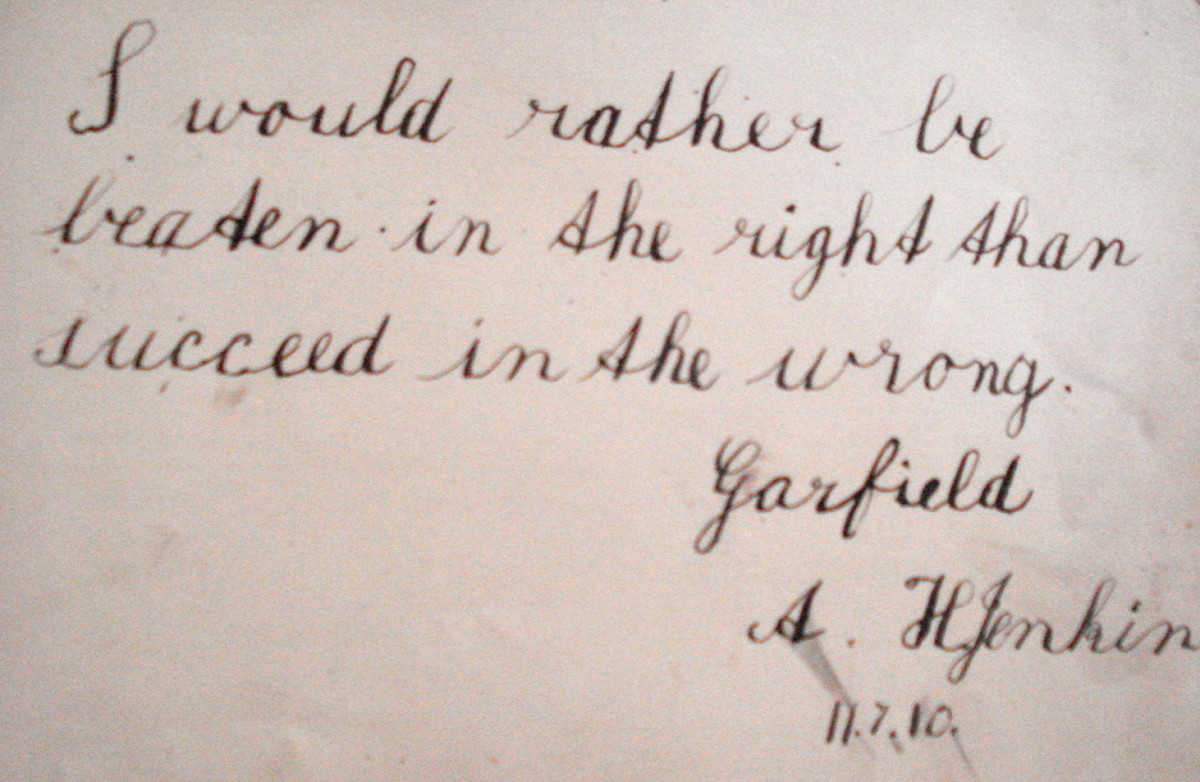 I would rather be
beaten in the right than
succeed in the wrong.
Garfield
A. H Jenkin
11.7.10.